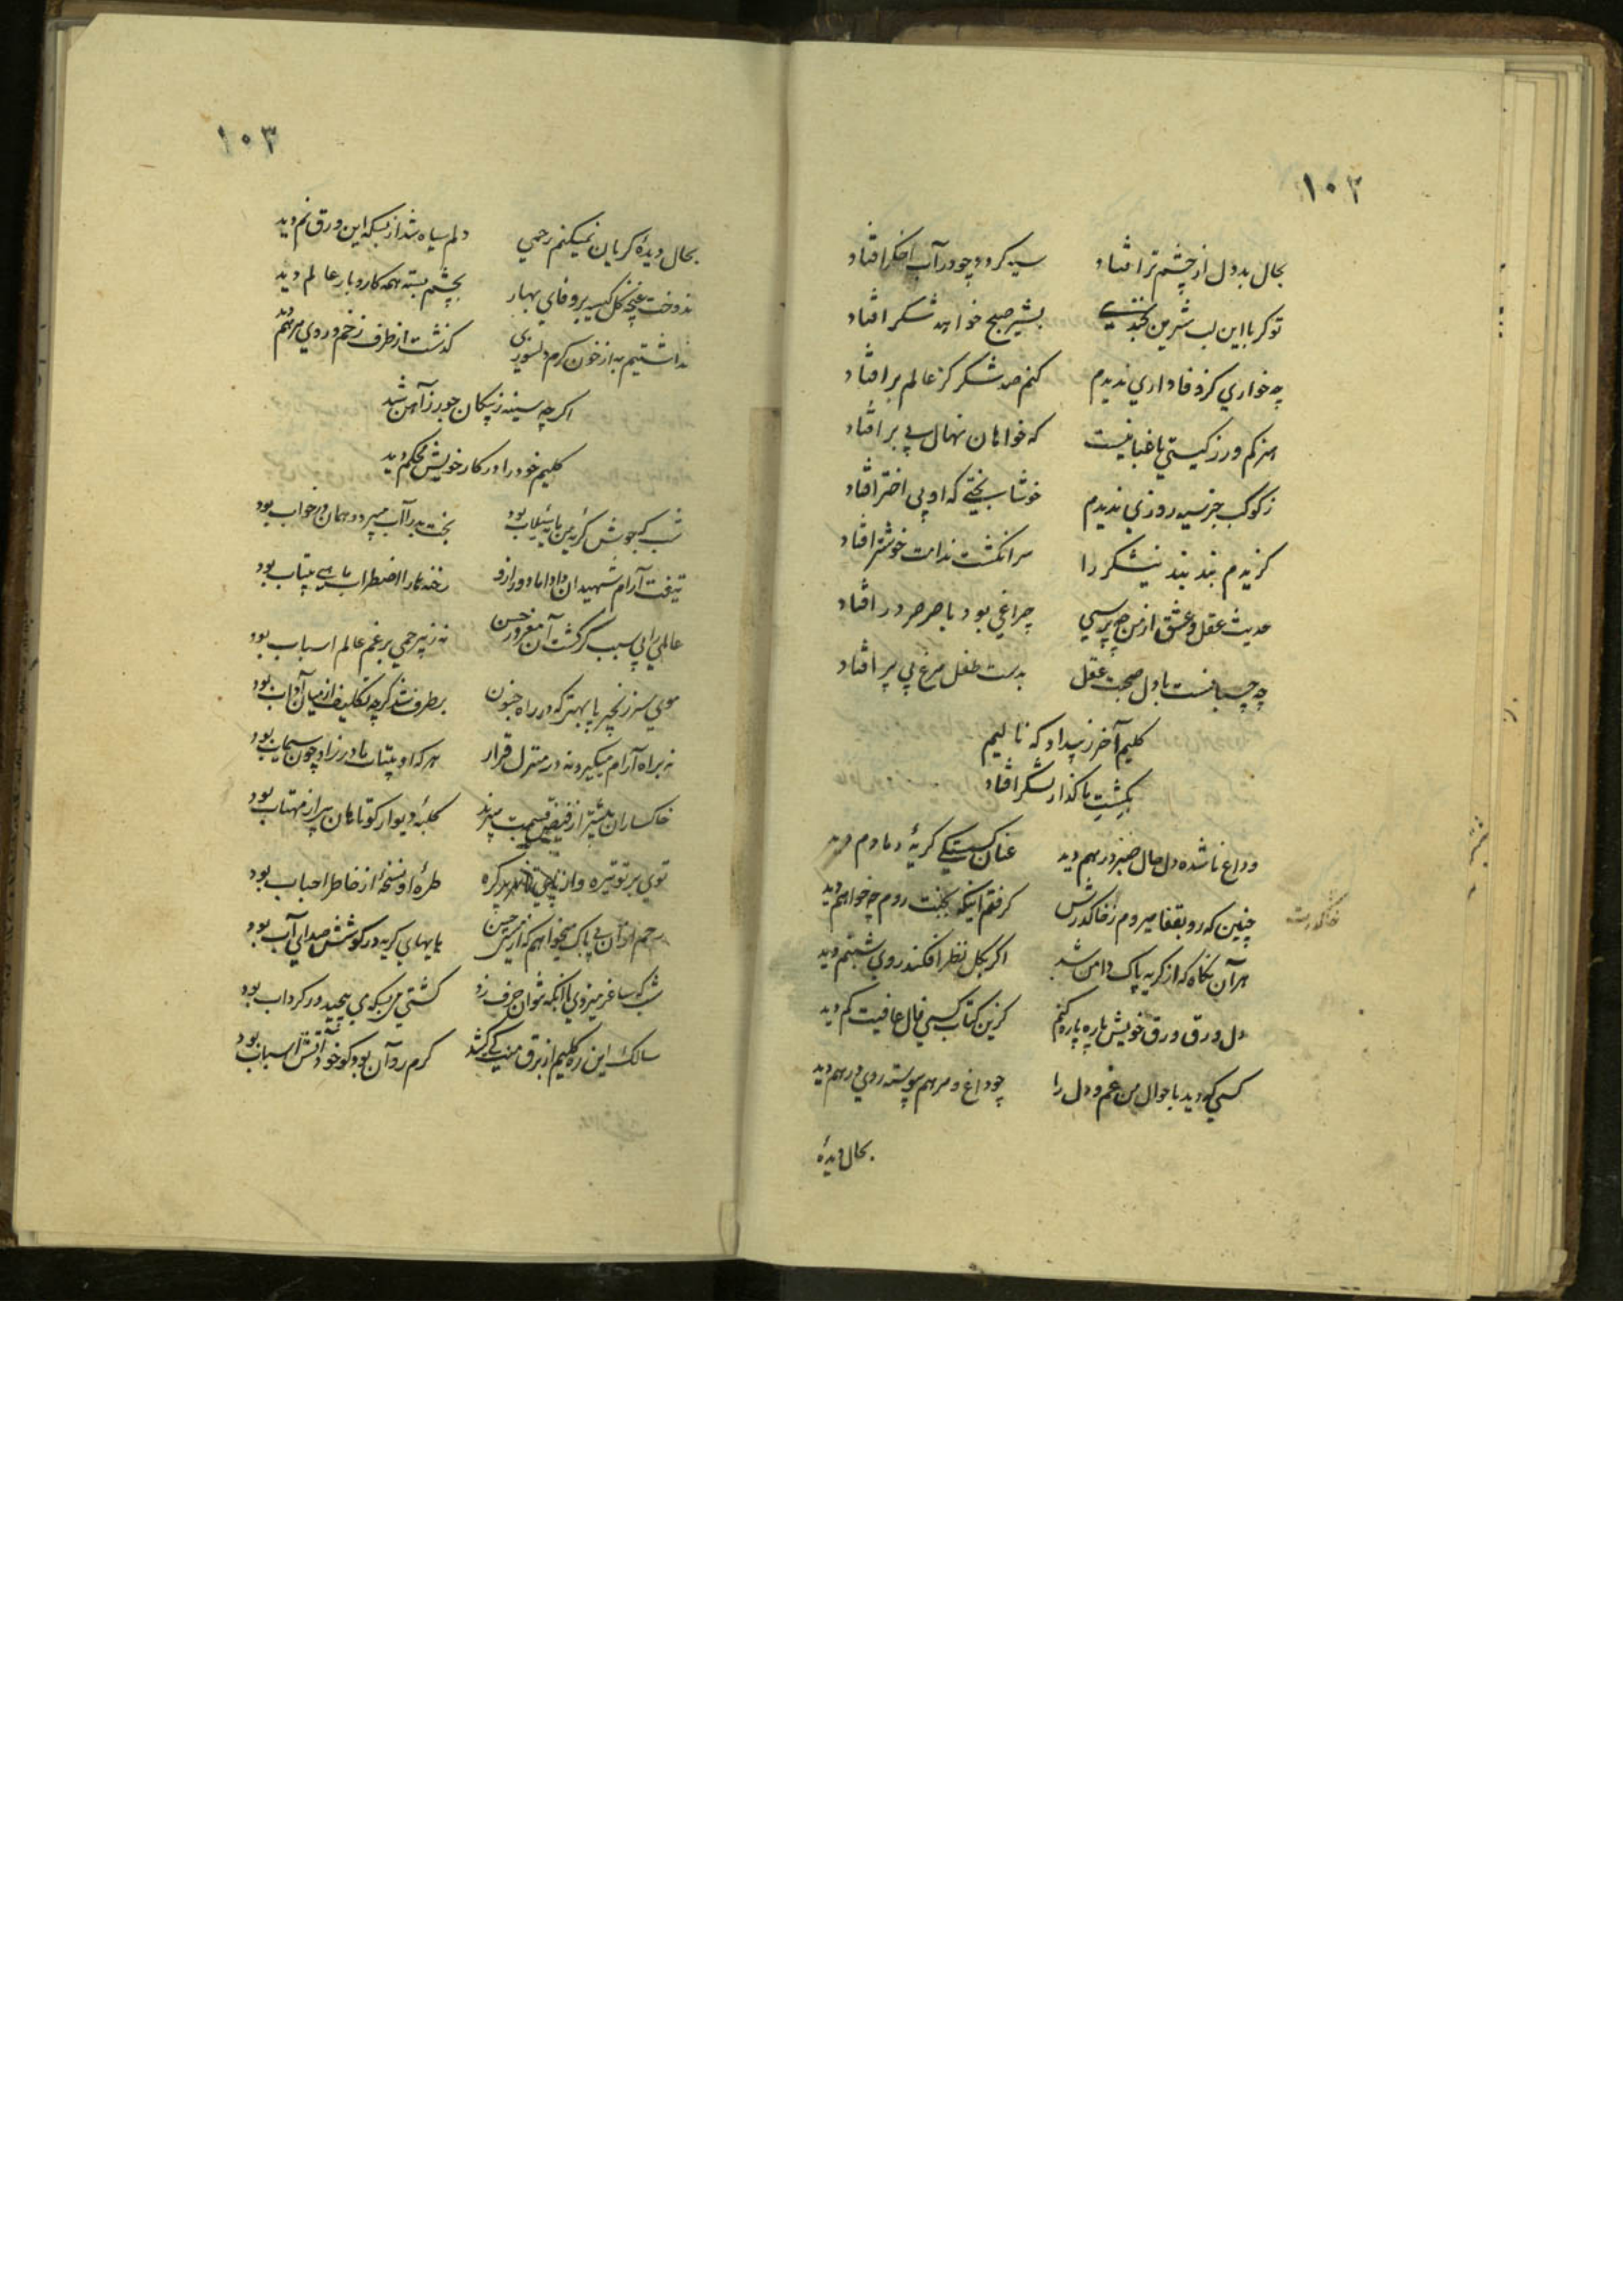 ۱۰۲
بحال بد دل از چشم تر افتاد سیه کردد چو در آب اخکر افتاد
تو کر با این لب شیرین بخندی بشیر صبح خواهد شکر افتاد
چه خواري کز وفاداري ندیدم کنم صد شکر کز عالم بر افتاد
هنر کم ورز کیتي باغبانیست که خواهان نهال بي بر افتاد
ز کوکب جز سیه روزي ندیدم خوشا بختي که او بي اختر افتاد
کزیدم بند بند نیشکر را سر انکشت ندامت خوشتر افتاد
حدیث عقل و عشق از من چه پرسي چراغي بود با صرصر در افتاد
چه چسبانست با دل صحبت عقل بدست طفل مرغ بي پر افتاد
کلیم آخر ز بیداد که نالیم
بکشت ما کذار لشکر افتاد
وداع ناشده دل حال صبر درهم دید عنان کسستکي کریۀ دمادم دید
چنین که رو بقفا میروم ز خاک درش کرفتم اینکه بجنت روم چه خواهم دید
خاک درت
هر آن نکاه که از کریه پاک دامن شد اکر بکل نظر افکند روي شبنم دید
دل ورق ورق خویش پاره پاره کنم کزین کتاب کسي فال عافیت کم دید
کسي که دید باحوال من غم و دل را چو داغ و مرهم پیوسته روي درهم دید
بحال دیدۀ
۱۰۳
بحال دیدۀ کریان نمیکنم رحمي دلم سیاه شد از بسکه این ورق نم دید
ندوخت غنچۀ کل کیسه بر وفاي بهار بچشم بسته همه کار و بار عالم دید
نداشتیم به از خون کرم دلسوزي کذشت از طرف زخم و روي مرهم دید
اکر چه سینه ز پیکان جور ز آهن شد
کلیم خود را در کار خویش محکم دید
شب که جوش کریۀ من مایۀ سیلاب بود بخت بد را آب میبرد و همان در خواب بود
تیغت آرام شهیدان داد اما دور ازو زخمها را اضطراب ماهي بیتاب بود
عالمي را بي سبب کشت آن مغرور حسن نه ز بیرحمي برغم عالم اسباب بود
موي سر زنجیر پا بهتر که در راه جنون برطرف شد کرچه تکلیف از میان آداب بود
نه براه آرام میکیرد نه در منزل قرار هر که او بیتاب مادرزاد چون سیماب بود
خاکساران بیشتر از فیض قسمت میبرند کلبۀ دیوار کوتاهان پر از مهتاب بود
طرۀ او نسخۀ از خاطر احباب بود
رحم از آن بي باک میخواهم که از مستي حسن هایهاي کریه در کوشش صداي آب بود
شب که ساغر میزدي با آنکه نتوان حرف زد کشتي مي بسکه مي پیچید در کرداب بود
سالک این ره کلیم از برق منت کي کشد کرم رو آن بود کو خود آتش اسباب بود